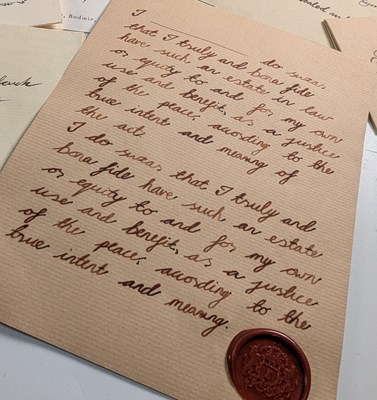 I ____________ do swear
that I truly and bona fide
have such an estate in law
or equity to and for my own
use and benefit, as a justice
of the peace, acording to the
true intent and meaning of
the act.
I do swear that I truly and
bona fide have such an estate
or equity to and for my own
use and benefit, as a justice
of the peace, acording to the
true intent and meaning.